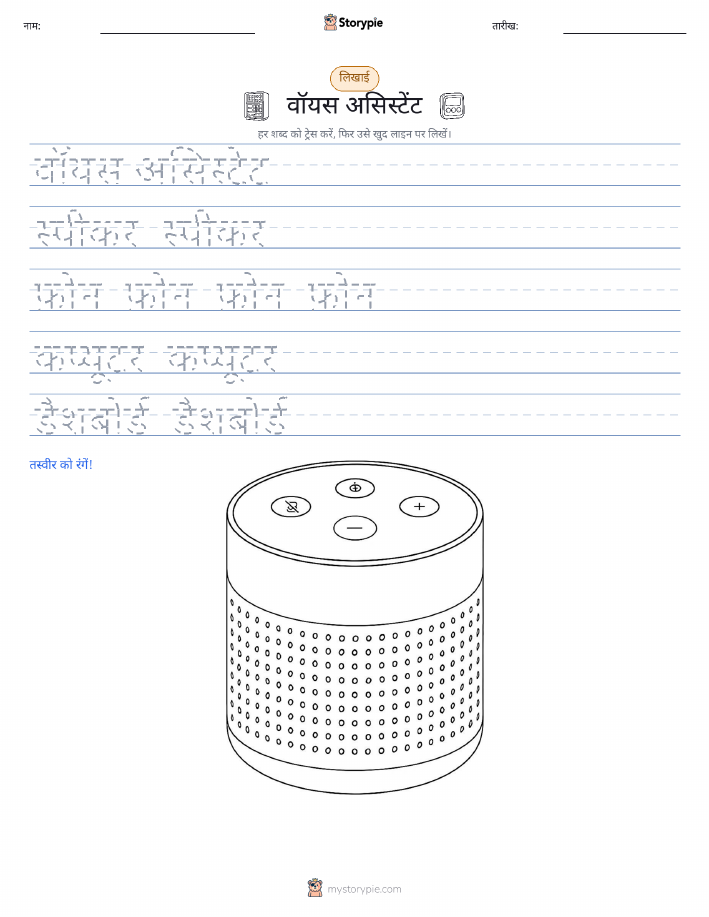 नाम: Storypie तारीख:
लिखाई
वॉयस असिस्टेंट
हर शब्द को ट्रेस करें, फिर उसे खुद लाइन पर लिखें।
वॉयस असिस्टेंट
स्पीकर स्पीकर
फ़ोन फ़ोन फ़ोन फ़ोन
कंप्यूटर कंप्यूटर
डैशबोर्ड डैशबोर्ड
तस्वीर को रंगें!
mystorypie.com